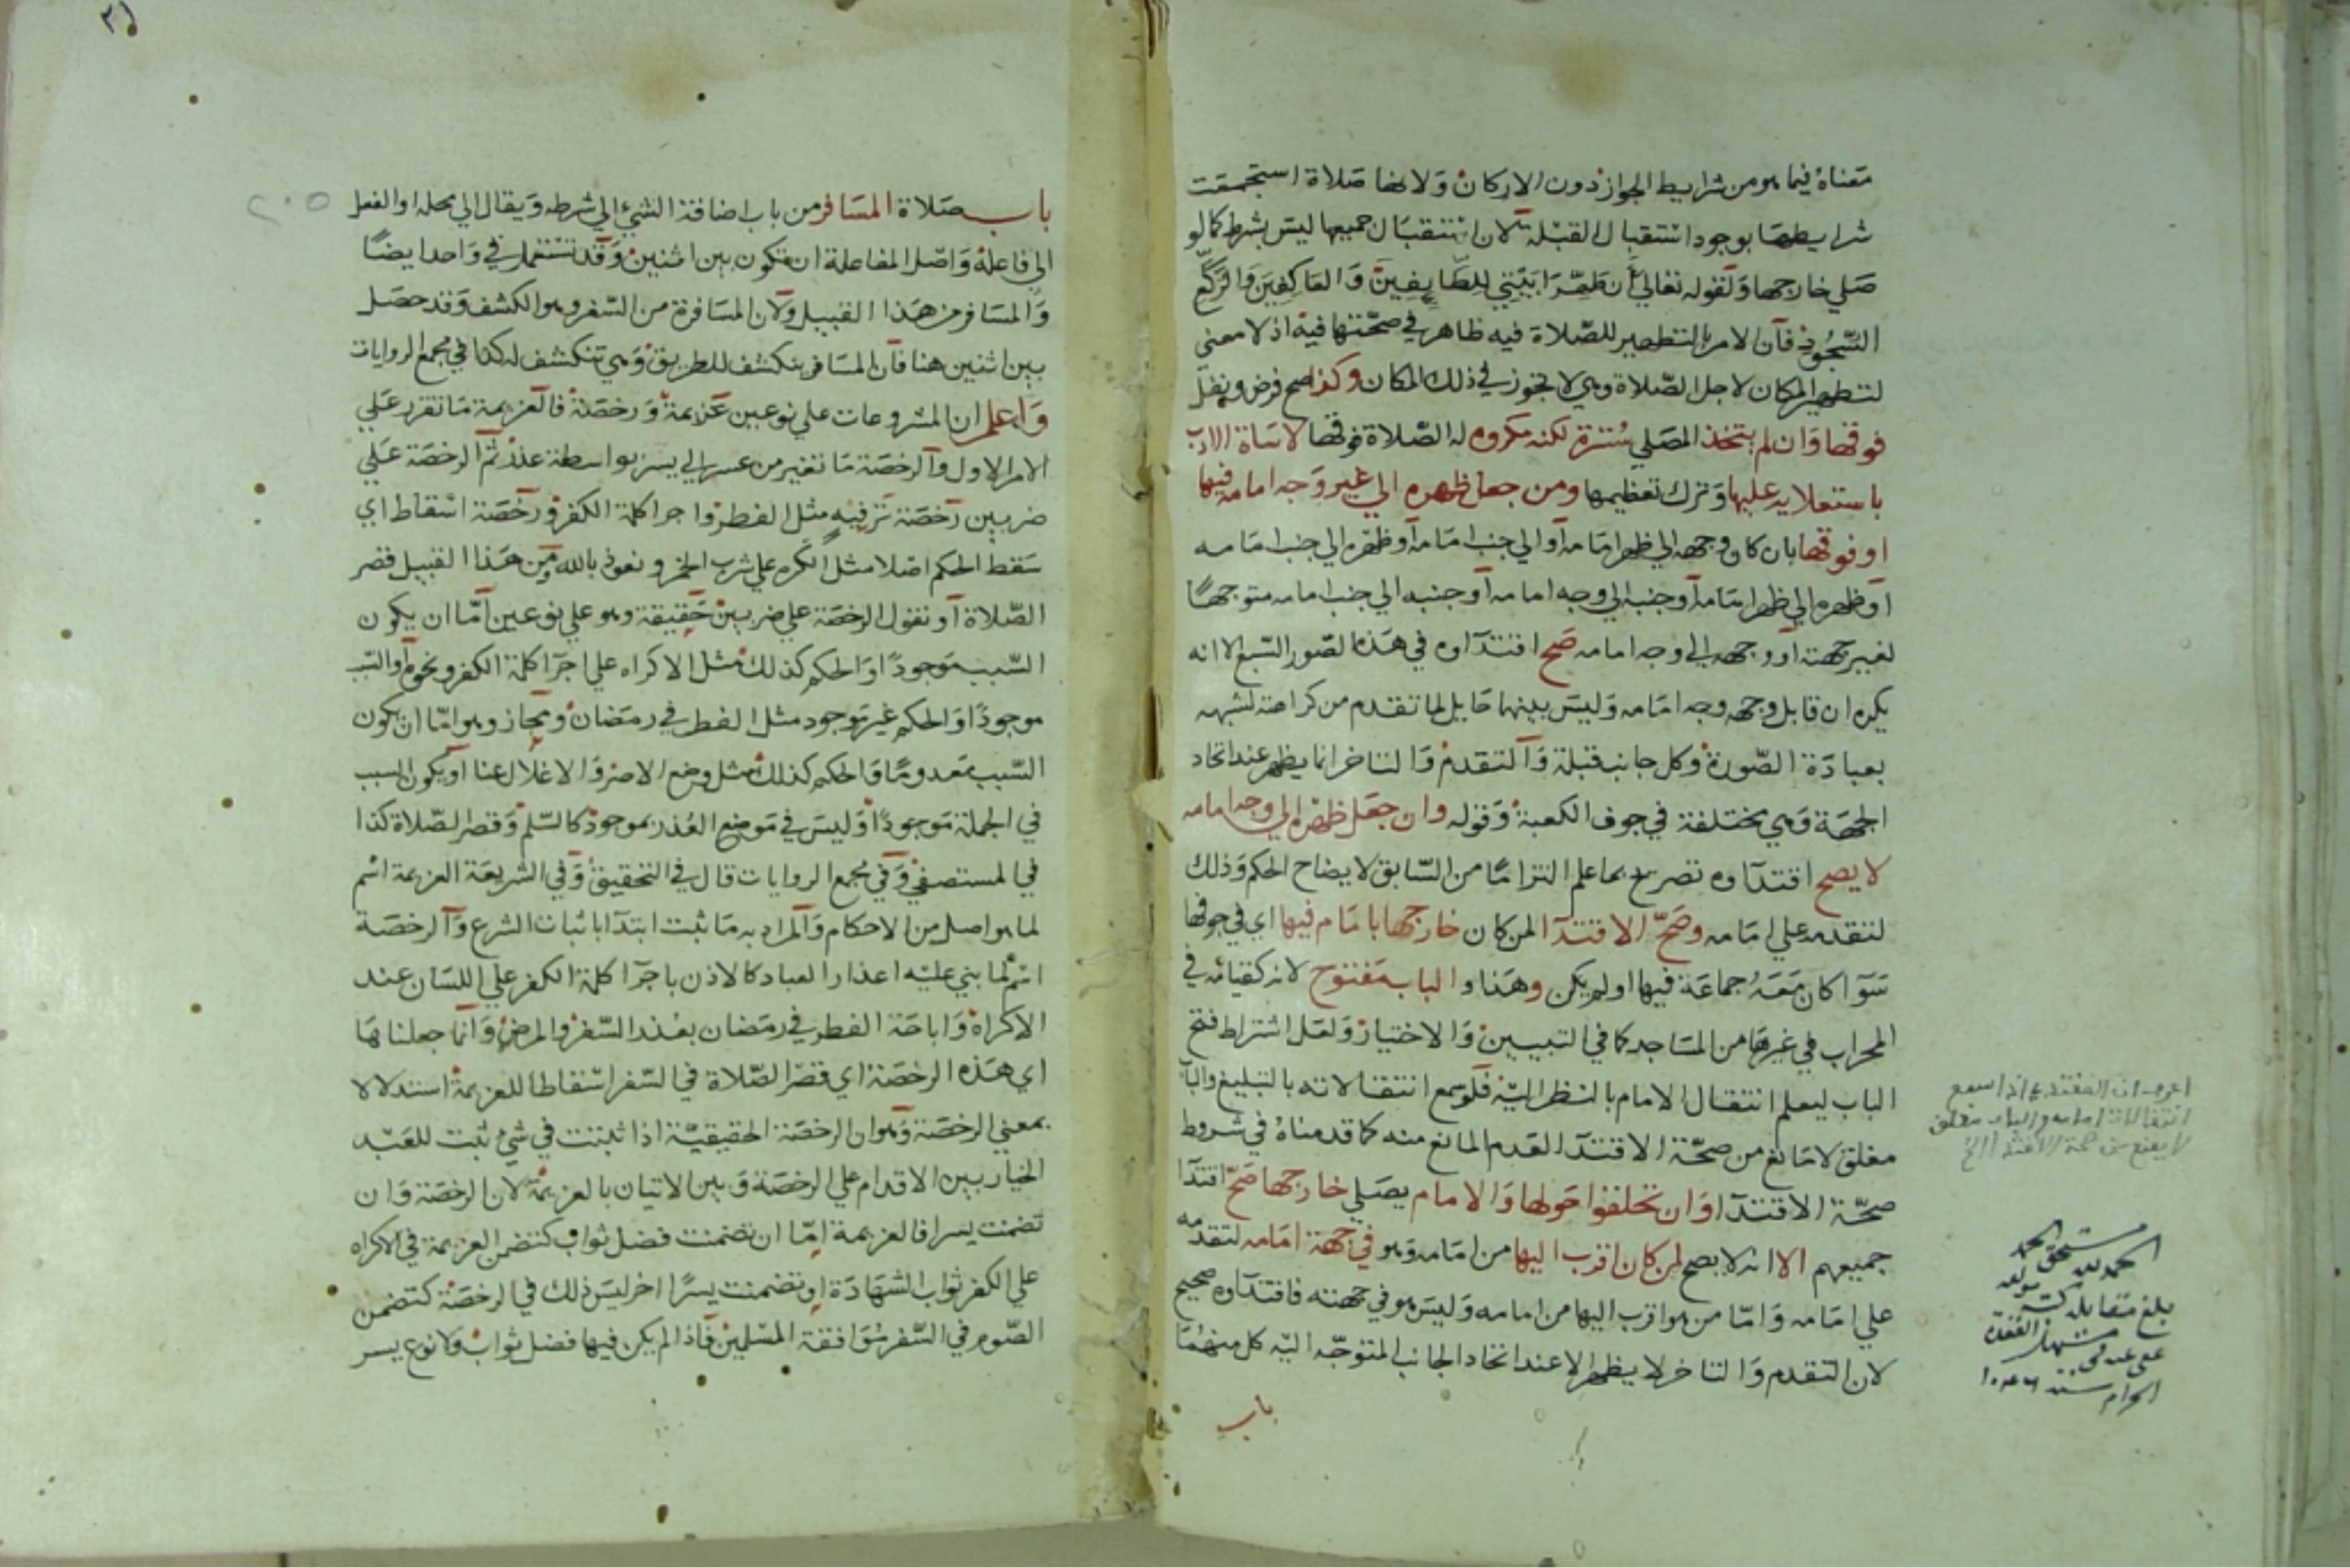 معناه فيما هو من شرايط الجواز دون الاركان ولانها صلاة استجمعت
شرايطها بوجود استقبال القبلة لان استقبال جميعها ليس بشرط كما لو
صلي خارجها ولقوله تعالي أن طهرا بيتي للطايفين والعاكفين والركع
السجود فان الامر بالتطهير للصلاة فيه ظاهر في صحتها فيه اذ لا معني
لتطهير المكان لاجل الصلاة وهي لا تجوز في ذلك المكان وكذا صح فرض ونفل
فوقها وان لم يتخذ المصلي سترة لكنه مكروه له الصلاة فوقها لاساة الادب
باستعلايه عليها وترك تعظيمها ومن جعل ظهره الي غير وجه امامه فيها
او فوقها بان كان وجهه الي ظهر امامه أو الي جنب امامه أو ظهره الي جنب امامه
أو ظهره الي ظهر امامه أو جنبه الي وجه امامه أو جنبه الي جنب امامه متوجها
لغير جهته أو وجهه الي وجه امامه صح اقتداوه في هذه الصور السبع الا انه
يكره ان قابل وجهه وجه امامه وليس بينهما حايل لما تقدم من كراهته لشبهه
بعبادة الصورة وكل جانب قبلة والتقدم والتاخر انما يظهر عند اتحاد
الجهة وهي مختلفة في جوف الكعبة وقوله وان جعل ظهره الي وجه امامه
لا يصح اقتداوه تصريح بما علم التزاما من السابق لايضاح الحكم وذلك
لتقدمه علي امامه وصح الاقتدا لمن كان خارجها بامام فيها اي في جوفها
سوا كان معه جماعة فيها او لم يكن وهذا و الباب مفتوح لانه كقيامه في
المحراب في غيرها من المساجد كما في التبيين والاختيار ولعل اشتراط فتح
الباب ليعلم انتقال الامام بالنظر اليه فلو سمع انتقالاته بالتبليغ والباب
مغلق لا مانع من صحة الاقتدا لعدم المانع منه كما قدمناه في شروط
صحة الاقتدا وان تحلقوا حولها والامام يصلي خارجها صح اقتدا
جميعهم الا انه لا يصح لمن كان اقرب اليها من امامه وهو في جهة امامه لتقدمه
علي امامه واما من هو اقرب اليها من امامه وليس هو في جهته فاقتداوه صحيح
لان التقدم والتاخر لا يظهر الا عند اتحاد الجانب المتوجه اليه كل منهما
باب
اعرف ان المقتدي اذا سمع
انتقالات امامه والباب مغلق
لا يمنع من صحة الاقتدا
الحمد لله مستحق الحمد
بلغ مقابلة
الحرام سنة
باب صلاة المسافر من باب اضافة الشيء الي شرطه ويقال الي محله او الفعل
الي فاعله واصل المفاعلة ان تكون بين اثنين وقد تستعمل في واحد ايضا
والمسافر من هذا القبيل ولان المسافرة من السفر وهو الكشف وقد حصل
بين اثنين هنا فان المسافر ينكشف للطريق وهي تنكشف له كذا في مجمع الروايات
واعلم ان المشروعات علي نوعين عزيمة ورخصة فالعزيمة ما تقرر علي
الامر الاول والرخصة ما تغير من عسر الي يسر بواسطة عذر ثم الرخصة علي
ضربين رخصة ترفيه مثل الفطر واجرا كلمة الكفر ورخصة اسقاط اي
سقط الحكم اصلا مثل المكره علي شرب الخمر ونعوذ بالله ومن هذا القبيل قصر
الصلاة أو نقول الرخصة علي ضربين حقيقة وهو علي نوعين اما ان يكون
السبب موجودا والحكم كذلك مثل الاكراه علي اجرا كلمة الكفر ونحوه أو السبب
موجودا والحكم غير موجود مثل الفطر في رمضان ومجاز وهو اما ان يكون
السبب معدوما والحكم كذلك مثل وضع الاصر والاغلال عنا أو يكون السبب
في الجملة موجودا وليس في موضع العذر بموجود كالسلم وقصر الصلاة كذا
في المستصفي وفي مجمع الروايات قال في التحقيق وفي الشريعة العزيمة اسم
لما هو اصل من الاحكام والمراد به ما ثبت ابتدا باثبات الشرع والرخصة
اسم لما بني علي اعذار العباد كالاذن باجرا كلمة الكفر علي اللسان عند
الاكراه واباحة الفطر في رمضان بعذر السفر والمرض وانما جعلناها
اي هذه الرخصة اي قصر الصلاة في السفر اسقاطا للعزيمة استدلالا
بمعني الرخصة وهو ان الرخصة الحقيقية اذا ثبتت في شيء ثبت للعبد
الخيار بين الاقدام علي الرخصة وبين الاتيان بالعزيمة لان الرخصة وان
تضمنت يسرا فالعزيمة اما ان تضمنت فضل ثواب كتضمن العزيمة في الاكراه
علي الكفر ثواب الشهادة او تضمنت يسرا اخر ليس ذلك في الرخصة كتضمن
الصوم في السفر موافقة المسلمين فاذا لم يكن فيها فضل ثواب ولا نوع يسر